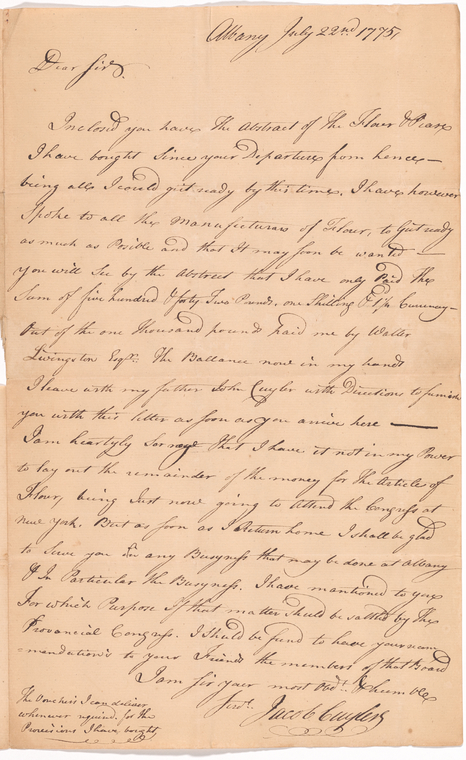 Albany July 22nd 1775,
Dear Sir,
Inclosed you have the Abstract of the Flour & Pease
I have bought Since your Departure from hence —
being all I could git ready by this time. I have however
Spoke to all the Manufacturars of Flour, to Git ready
as much as Posible and that It may soon be wanted —
you will See by the abstract that I have only Paid the
Sum of five hundred & forty Two Pounds, one Shilling & Currency —
Out of the one Thousand pounds Paid me by Walter
Livingston Esqr. The Ballance now in my hands
I leave with my father John Cuyler with Directions to furnish
you with this letter as soon as you arrive here —
I am heartyly Sorrey that I have it not in my Power
to lay out the remainder of the money for the Article of
Flour, being Just now going to attend the Congress at
New York. But as soon as I Return home I shall be glad
to Serve you in any Busyness that may be done at Albany
& In Particular the Busyness I have mantioned to you
For which Purpose If that matter should be sattled by the
Provancial Congress. I Should be fund to have your recom
-mandations to your Friends the members of that Board
I am Sir your most Obdt. & Humble
Servt. Jacob Cuyler
The Vouchers I can deliver
whenever requird, for the
Provisions I have bought